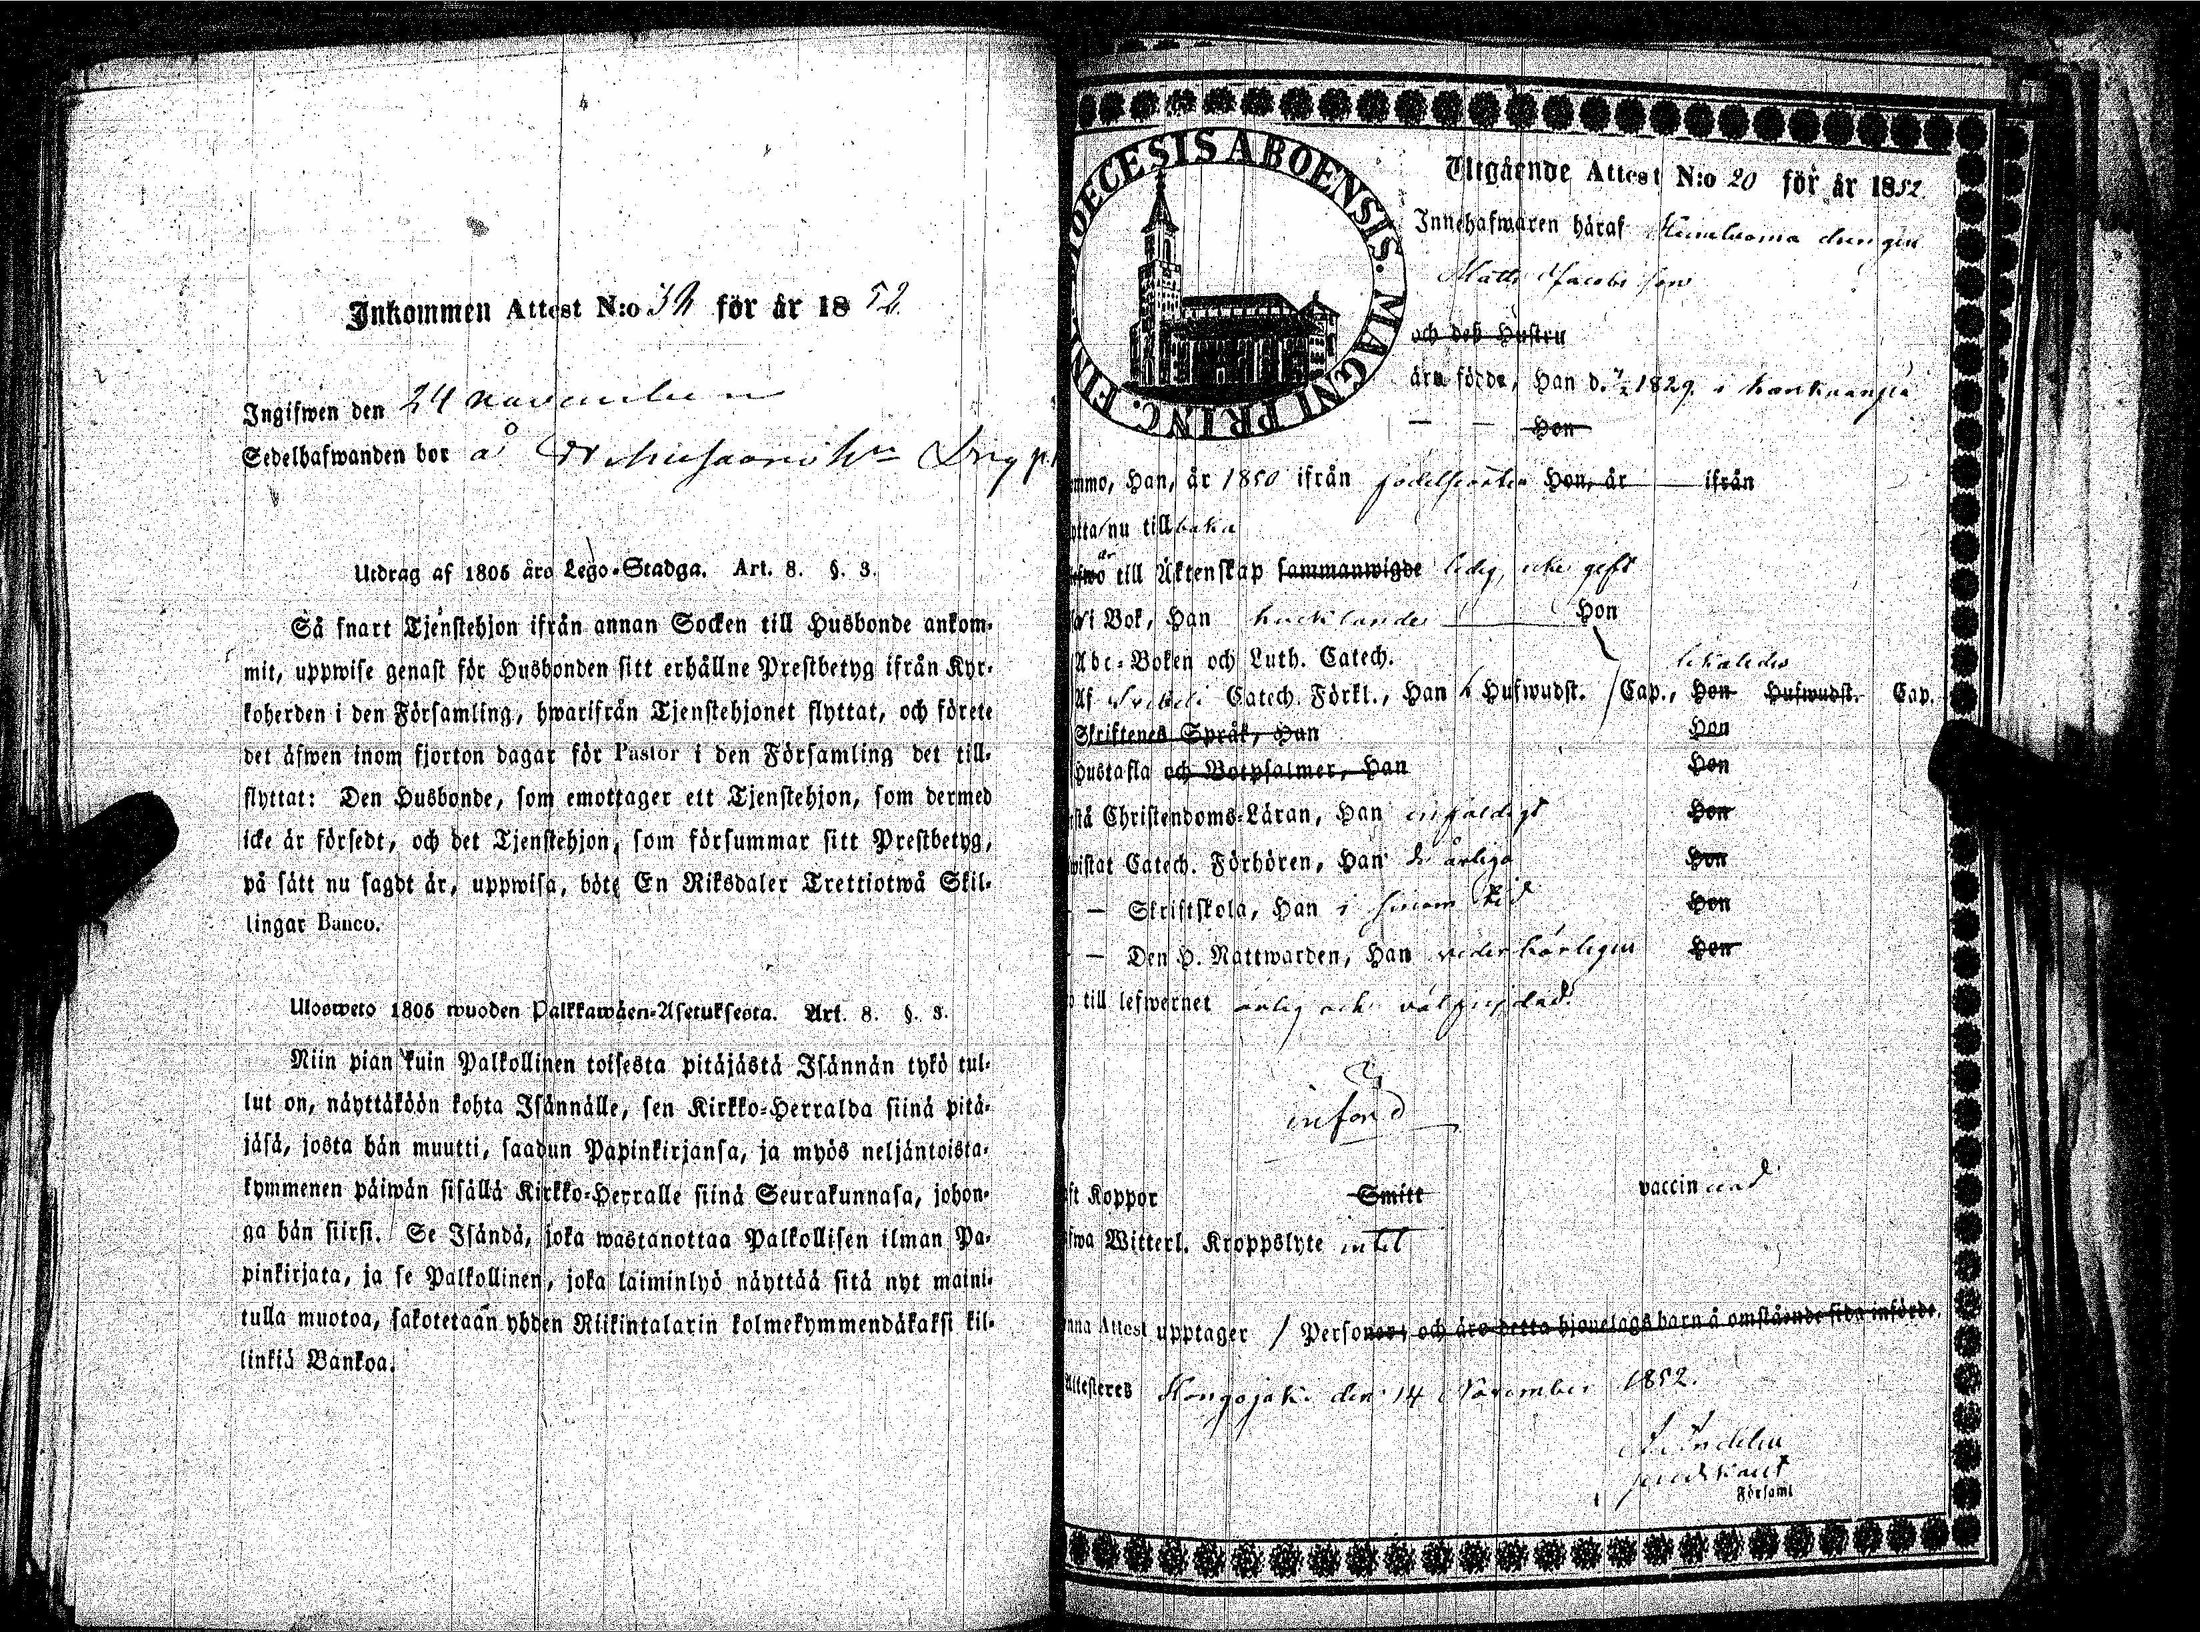 Inkommen Attest N:o 32 för år 1852.
Ingifwen den 24 november
Sedelhafwanden bor å
Utdrag af 1805 års Lego-Stadga. Art. 8. §. 3.
Så snart Tjenstehjon ifrån annan Socken till Husbonde ankom-
mit, uppwise genast för Husbonden sitt erhållne Prestbetyg ifrån Kyr-
koherden i den Församling, hwarifrån Tjenstehjonet flyttat, och förete
det äfwen inom fjorton dagar för Pastor i den Församling det till-
flyttat: Den Husbonde, som emottager ett Tjenstehjon, som dermed
icke är försedt, och det Tjenstehjon, som försummar sitt Prestbetyg,
på sätt nu sagdt är, uppwisa, böte En Riksdaler Trettiotwå Skil-
lingar Banco.
Ulosweto 1805 wuoden Palkkawäen-Asetuksesta. Art. 8. §. 3.
Niin pian kuin Palkollinen toisesta pitäjästä Isännän tykö tul-
lut on, näyttäköön kohta Isännälle, sen Kirkko-Herralda siinä pitä-
jäsä, josta hän muutti, saadun Papinkirjansa, ja myös neljäntoista-
kymmenen päiwän sisällä Kirkko-Herralle siinä Seurakunnasa, johon-
ga hän siirsi. Se Isändä, joka wastanottaa Palkollisen ilman Pa-
pinkirjata, ja se Palkollinen, joka laiminlyö näyttää sitä nyt maini-
tulla muotoa, sakotetaan yhden Riikintalarin kolmekymmendäkaksi kil-
linkiä Bankoa.
DIOECESIS ABOENSIS. MAGNI PRINC. FINL.
Utgående Attest N:o 20 för år 1852.
Innehafwaren häraf drengen
Matts Jacobsson
och deß Hustru
äro födde, Han d. 1829. i Honkajoki
Hon
Han, år 1850 ifrån födelseorten Hon, år ifrån
nu tillbaka
är
till Äktenskap sammanwigde ledig, icke gift
i Bok, Han Hon
Abc-Boken och Luth. Catech.
Af Svebeli Catech. Förkl., Han Hufwudst. Cap., Hon Hufwudst. Cap.
Skriftenes Språk, Han Hon
Hustafla och Botpsalmer, Han Hon
Christendoms-Läran, Han enfaldigt Hon
Catech. Förhören, Han de årliga Hon
— Skriftskola, Han i sinom tid Hon
— Den H. Nattwarden, Han vederbörligen Hon
till lefwernet ärlig och välfrejdad.
Koppor Smitt vaccinerad
Witterl. Kroppslyte intet
Attest upptager 1 Personer, och äro detta hjonelags barn å omstående sida införde.
Attesteres Kongojoki den 14 November 1852.
A. Indelin
predikant
Församl